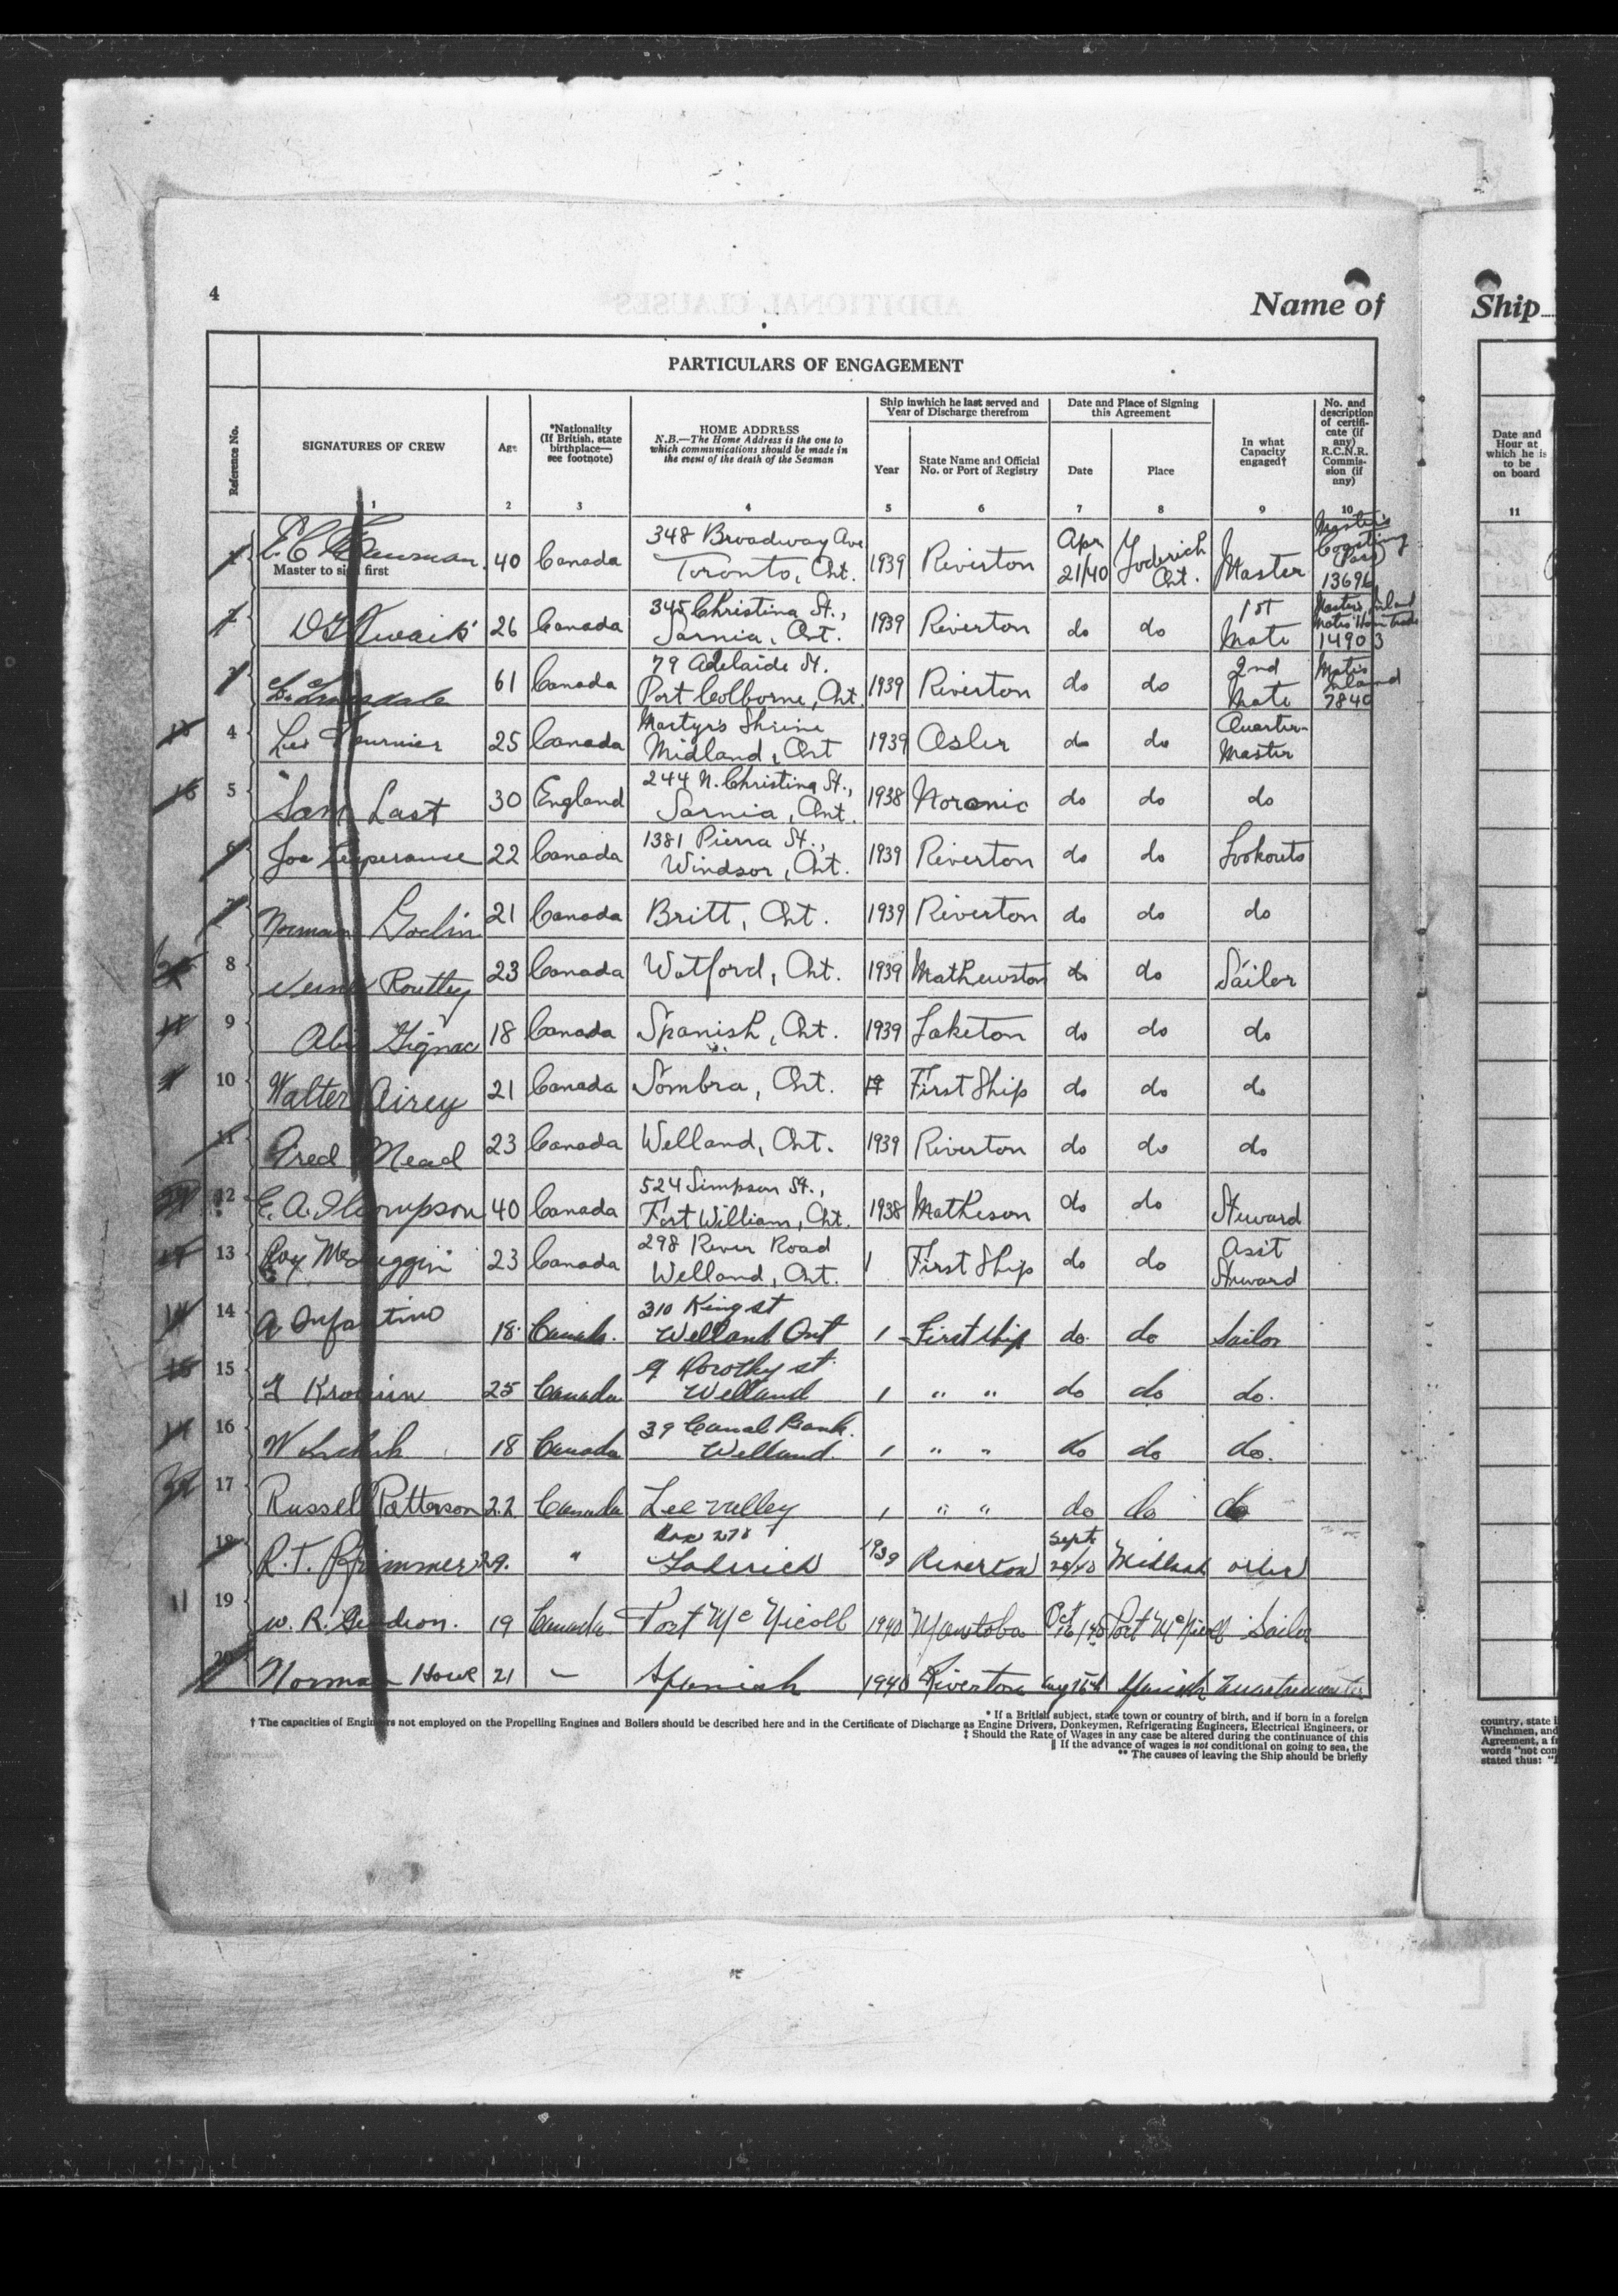 4
Name of
Ship
PARTICULARS OF ENGAGEMENT
Reference No.
SIGNATURES OF CREW
Age
*Nationality
(If British, state
birthplace—
see footnote)
HOME ADDRESS
N.B.—The Home Address is the one to
which communications should be made in
the event of the death of the Seaman
Ship inwhich he last served and
Year of Discharge therefrom
Year
State Name and Official
No. or Port of Registry
Date and Place of Signing
this Agreement
Date
Place
In what
Capacity
engaged†
No. and
description
of certifi-
cate (if
any)
R.C.N.R.
Commis-
sion (if
any)
Date and
Hour at
which he is
to be
on board
1 2 3 4 5 6 7 8 9 10 11
1 E. C. 40 Canada 348 Broadway Ave Toronto, Ont. 1939 Riverton Apr 21/40 Goderich Ont. Master Master's Coasting 13696
Master to sign first
2 26 Canada 345 Christina St., Sarnia, Ont. 1939 Riverton do do 1st Mate 14903
3 61 Canada 79 Adelaide St. Port Colborne, Ont. 1939 Riverton do do 2nd Mate Mate's Inland 7840
4 Leo Fournier 25 Canada Martyr's Shrine Midland, Ont 1939 Osler do do Quarter-Master
5 Sam Last 30 England 244 N. Christina St., Sarnia, Ont. 1938 Noronic do do do
6 Joe Lesperance 22 Canada 1381 Pierra St., Windsor, Ont. 1939 Riverton do do Lookouts
7 Norman Godin 21 Canada Britt, Ont. 1939 Riverton do do do
8 Routley 23 Canada Watford, Ont. 1939 Mathewston do do Sailor
9 Gignac 18 Canada Spanish, Ont. 1939 Laketon do do do
10 Walter Airey 21 Canada Sombra, Ont. First Ship do do do
11 Fred Mead 23 Canada Welland, Ont. 1939 Riverton do do do
12 E. A. Thompson 40 Canada 524 Simpson St., Fort William, Ont. 1938 Matheson do do Steward
13 Roy 23 Canada 298 River Road Welland, Ont. 1 First Ship do do Ass't Steward
14 A Infantino 18 Canada 310 King st Welland Ont 1 First ship do do Sailor
15 25 Canada 9 Dorothy st. Welland 1 " " do do do.
16 W 18 Canada 39 Canal Bank. Welland. 1 " " do do do.
17 Russell Patterson 22 Canada Lee valley 1 " " do do do
18 R. T. 29. " Box 278 Goderich 1939 Riverton Sept 28/40 Midland oiler
19 W. R. Gendron. 19 Canada Port McNicoll 1940 Manitoba Oct 16/40 Port McNicoll Sailor
20 Norman 21 Spanish 1940 Riverton Spanish Quartermaster
* If a British subject, state town or country of birth, and if born in a foreign
† The capacities of Engineers not employed on the Propelling Engines and Boilers should be described here and in the Certificate of Discharge as Engine Drivers, Donkeymen, Refrigerating Engineers, Electrical Engineers, or
‡ Should the Rate of Wages in any case be altered during the continuance of this
‖ If the advance of wages is not conditional on going to sea, the
** The causes of leaving the Ship should be briefly
country, state
Winchmen, and
Agreement, a
words "not con
stated thus: